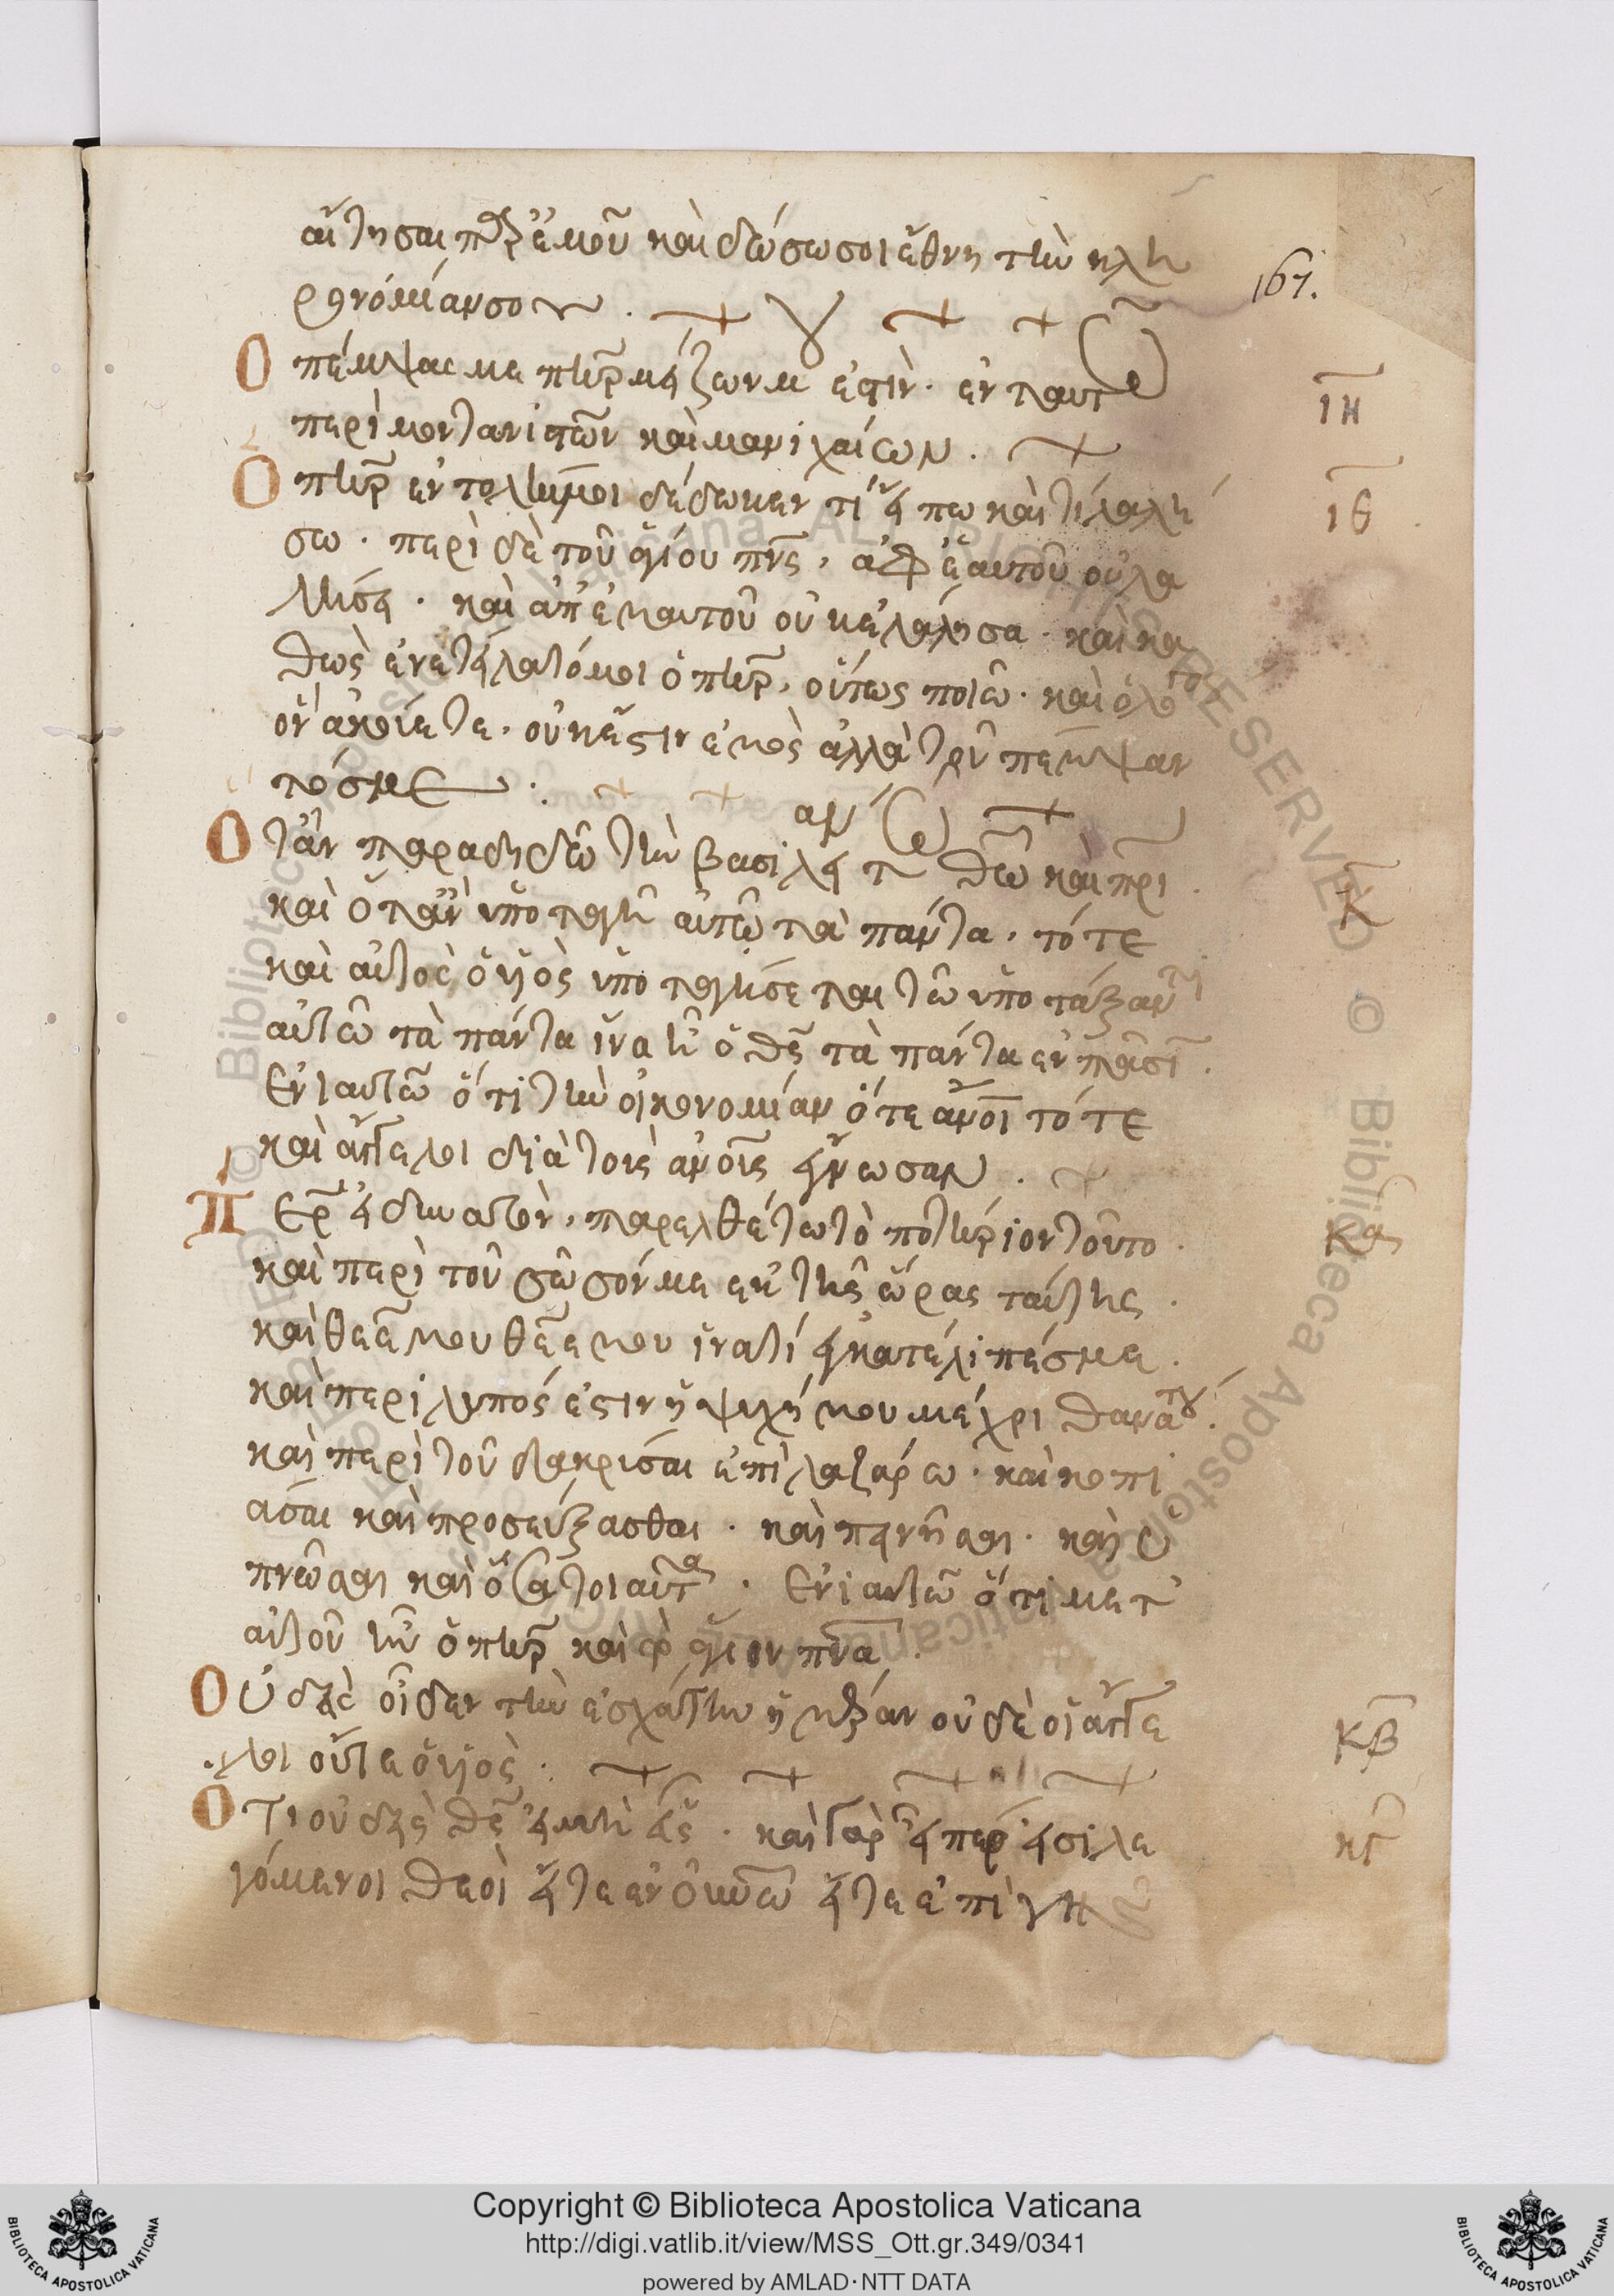 αἴτησαι παρ' ἐμοῦ καὶ δώσω σοι ἔθνη τὴν κλη
ρονομίαν σου .
167.
Ο πέμψας με πηρ μείζων μ ἐστὶν · ἐν ταυτῶ
ιη
περὶ μονταντιστῶν καὶ μανιχαίων .
Ο πηρ ἐντολήν μοι δέδωκεν τί εἴπω καὶ τί λαλή
ιθ
σω · περὶ δὲ τοῦ ἁγίου πνς , ἀφ' ἑαυτοῦ οὐ λα
λήσει · καὶ ἀπ' ἐμαυτοῦ οὐκ ἐλάλησα · καὶ κα
θὼς ἐνετείλατό μοι ὁ πηρ , οὕτως ποιῶ · καὶ ὁ λόγος
ὃν ἀκούετε · οὐκ ἔστιν ἐμὸς ἀλλὰ τοῦ πέμψαν
τός με :
Ο τὰν παραδιδῶ τὴν βασιλεί τῶ θῶ καὶ πρι ·
κ
καὶ ὅταν ὑποταγῆ αὐτῶ τὰ πάντα , τότε
καὶ αὐτὸς ὁ υἱὸς ὑποταγήσεται τῶ ὑποτάξαντι
αὐτῶ τὰ πάντα ἵνα ἦ ὁ θς τὰ πάντα ἐν πᾶσι .
Ἐνταυτῶ ὅτι τὴν οἰκονομίαν ὅτε ἄνοι τότε
καὶ ἄγγελοι διὰ τοὺς ἀνοις ἔγνωσαν .
Π ερ εἰ δυνατὸν , παρελθέτω τὸ ποτήριον τοῦτο ·
κα
καὶ περὶ τοῦ σῶσόν με ἐκ τῆς ὥρας ταύτης .
καὶ θεέ μου θεέ μου ἱνατί ἐγκατέλιπές με .
καὶ περίλυπός ἐστιν ἡ ψυχή μου μέχρι θανάτου .
καὶ περὶ τοῦ δακρῦσαι ἐπὶ λαζάρω · καὶ κοπι
ᾶσαι καὶ προσεύξασθαι · καὶ πεινῆσαι · καὶ ὑ
πνῶσαι καὶ ὅσα τοιαῦτα . Ἐνταυτῶ ὅτι μετ'
αὐτοῦ ἦν ὁ πηρ καὶ τὸ ἅγιον πνα .
Ο ὐδεὶς οἶδεν τὴν ἐσχάτην ἡμέραν οὐδὲ οἱ ἄγγε
κβ
λοι οὔτε ὁ υἱὸς :
Ο τι οὐδεὶς θς εἰ μὴ εἷς · καὶ γὰρ εἴπερ εἰσὶ λε
κγ
γόμενοι θεοὶ εἴτε ἐν οὐνῶ εἴτε ἐπὶ γῆς
Copyright © Biblioteca Apostolica Vaticana
http://digi.vatlib.it/view/MSS_Ott.gr.349/0341
powered by AMLAD·NTT DATA